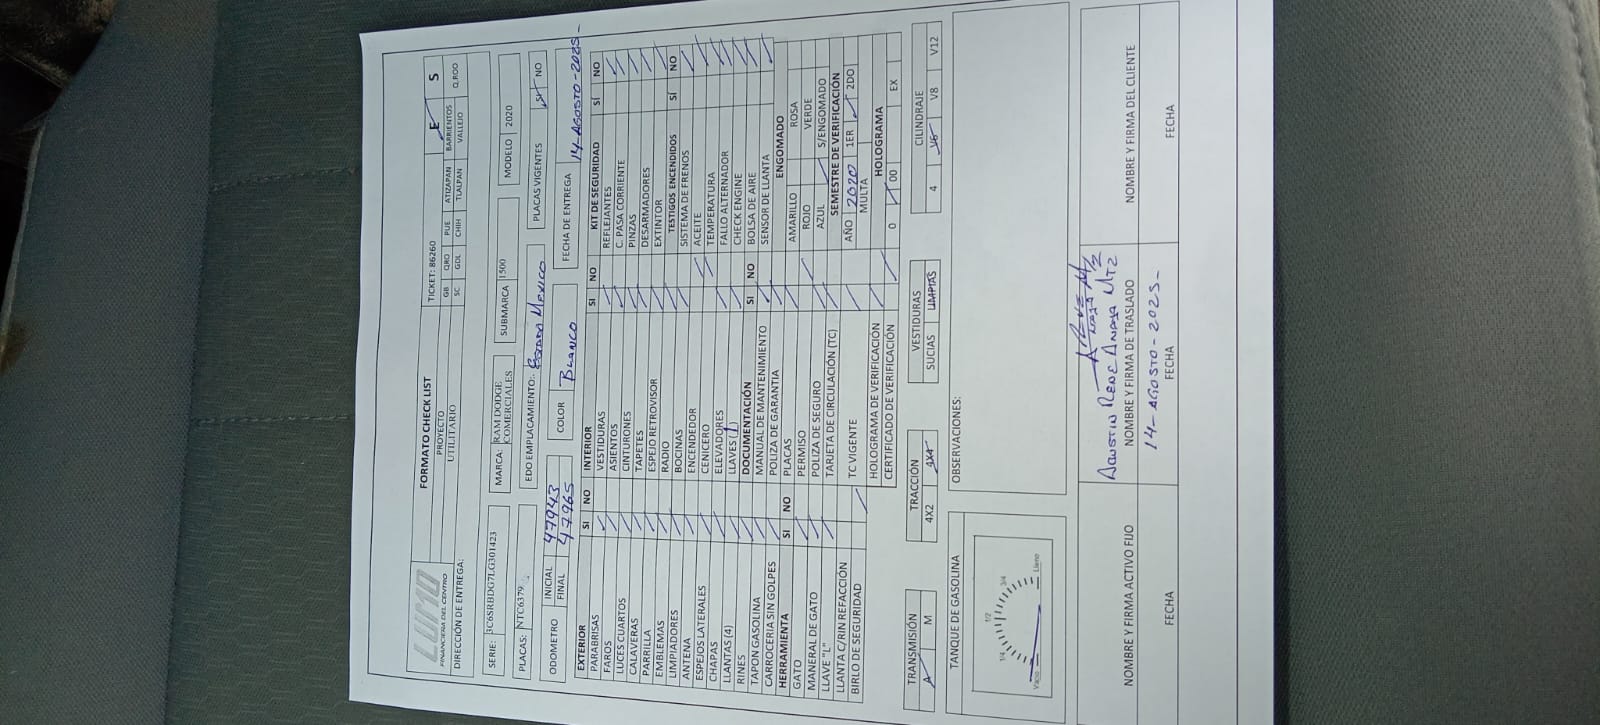 LUMO
FINANCIERA DEL CENTRO
FORMATO CHECK LIST
PROYECTO
UTILITARIO
TICKET: 86260
GB QRO PUE ATIZAPAN BARRIENTOS E S
SC GDL CHIH TLALPAN VALLEJO Q.ROO
DIRECCIÓN DE ENTREGA:
SERIE: 3C6SRBDG7LG301423
MARCA: RAM DODGE COMERCIALES
SUBMARCA 1500
MODELO 2020
PLACAS: NTC6379
EDO EMPLACAMIENTO:- Estado Mexico
PLACAS VIGENTES SI NO
ODOMETRO INICIAL 47943
FINAL 47965
COLOR Blanco
FECHA DE ENTREGA 14-Agosto-2025-
EXTERIOR SI NO
PARABRISAS
FAROS
LUCES CUARTOS
CALAVERAS
PARRILLA
EMBLEMAS
LIMPIADORES
ANTENA
ESPEJOS LATERALES
CHAPAS
LLANTAS (4)
RINES
TAPON GASOLINA
CARROCERIA SIN GOLPES
HERRAMIENTA SI NO
GATO
MANERAL DE GATO
LLAVE "L"
LLANTA C/RIN REFACCIÓN
BIRLO DE SEGURIDAD
INTERIOR SI NO
VESTIDURAS
ASIENTOS
CINTURONES
TAPETES
ESPEJO RETROVISOR
RADIO
BOCINAS
ENCENDEDOR
CENICERO
ELEVADORES
LLAVES (1)
DOCUMENTACIÓN SI NO
MANUAL DE MANTENIMIENTO
POLIZA DE GARANTIA
PLACAS
PERMISO
POLIZA DE SEGURO
TARJETA DE CIRCULACIÓN (TC)
TC VIGENTE
HOLOGRAMA DE VERIFICACIÓN
CERTIFICADO DE VERIFICACIÓN
KIT DE SEGURIDAD SÍ NO
REFLEJANTES
C. PASA CORRIENTE
PINZAS
DESARMADORES
EXTINTOR
TESTIGOS ENCENDIDOS SÍ NO
SISTEMA DE FRENOS
ACEITE
TEMPERATURA
FALLO ALTERNADOR
CHECK ENGINE
BOLSA DE AIRE
SENSOR DE LLANTA
ENGOMADO
AMARILLO ROSA
ROJO VERDE
AZUL S/ENGOMADO
SEMESTRE DE VERIFICACIÓN
AÑO 1ER 2DO
MULTA
HOLOGRAMA
0 00 EX
TRANSMISIÓN
A M
TRACCIÓN
4X2 4X4
VESTIDURAS
SUCIAS LIMPIAS
CILINDRAJE
4 V6 V8 V12
TANQUE DE GASOLINA
Vacio 1/4 1/2 3/4 Lleno
OBSERVACIONES:
Agustin Rene Anaya Mtz
NOMBRE Y FIRMA ACTIVO FIJO
NOMBRE Y FIRMA DE TRASLADO
NOMBRE Y FIRMA DEL CLIENTE
14-Agosto-2025-
FECHA
FECHA
FECHA